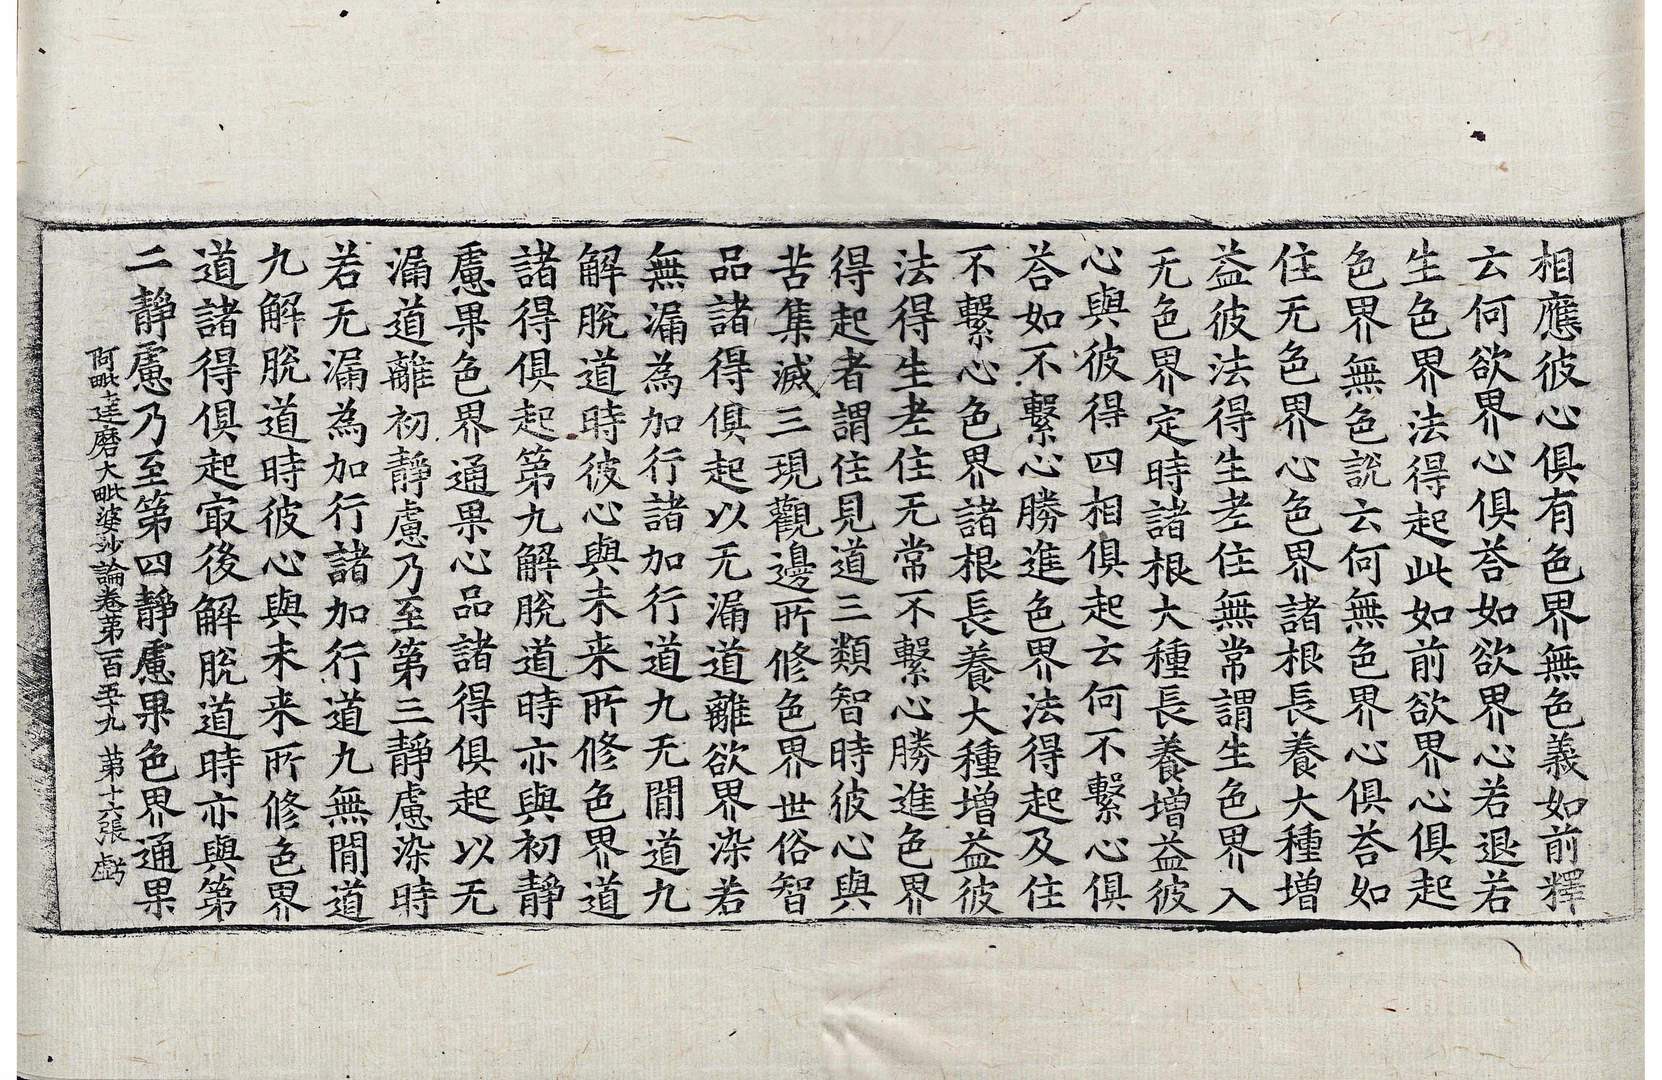 相應彼心俱有色界無色義如前釋
云何欲界心俱荅如欲界心若退若
生色界法得起此如前欲界心俱起
色界無色說云何無色界心俱荅如
住无色界心色界諸根長養大種增
益彼法得生老住無常謂生色界入
无色界定時諸根大種長養增益彼
心與彼得四相俱起云何不繫心俱
荅如不繫心勝進色界法得起及住
不繫心色界諸根長養大種增益彼
法得生老住无常不繫心勝進色界
得起者謂住見道三類智時彼心與
苦集滅三現觀邊所修色界世俗智
品諸得俱起以无漏道離欲界染若
無漏為加行諸加行道九无間道九
解脫道時彼心與未来所修色界道
諸得俱起第九解脫道時亦與初靜
慮果色界通果心品諸得俱起以无
漏道離初靜慮乃至第三靜慮染時
若无漏為加行諸加行道九無間道
九解脫道時彼心與未来所修色界
道諸得俱起㝡後解脫道時亦與第
二靜慮乃至第四靜慮果色界通果
阿毗達磨大毗婆沙論卷第一百五十九 第十六張 虧